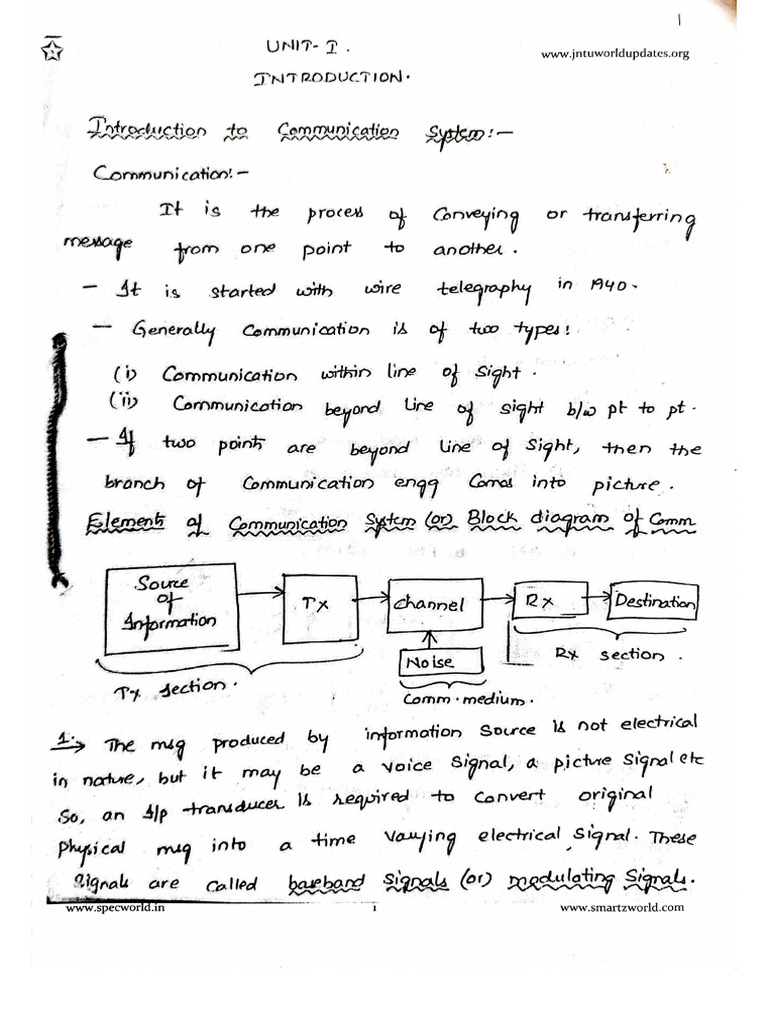 1
UNIT-I.
www.jntuworldupdates.org
INTRODUCTION.
Introduction to Communication System:-
Communication:-
It is the process of Conveying or transferring
message from one point to another.
- It is started with wire telegraphy in 1940.
- Generally Communication is of two types:
(i) Communication within line of Sight.
(ii) Communication beyond Line of sight b/w pt to pt.
- If two points are beyond Line of Sight, then the
branch of Communication engg Comes into picture.
Elements of Communication System (or) Block diagram of Comm
Source
of
Information
Tx
Channel
Rx
Destination
Noise
Tx section.
Comm. medium.
Rx section.
1. → The msg produced by information Source is not electrical
in nature, but it may be a voice Signal, a picture Signal etc
So, an I/p transducer is required to convert original
physical msg into a time varying electrical Signal. These
Signals are called baseband Signals (or) modulating Signals.
www.specworld.in
1
www.smartzworld.com